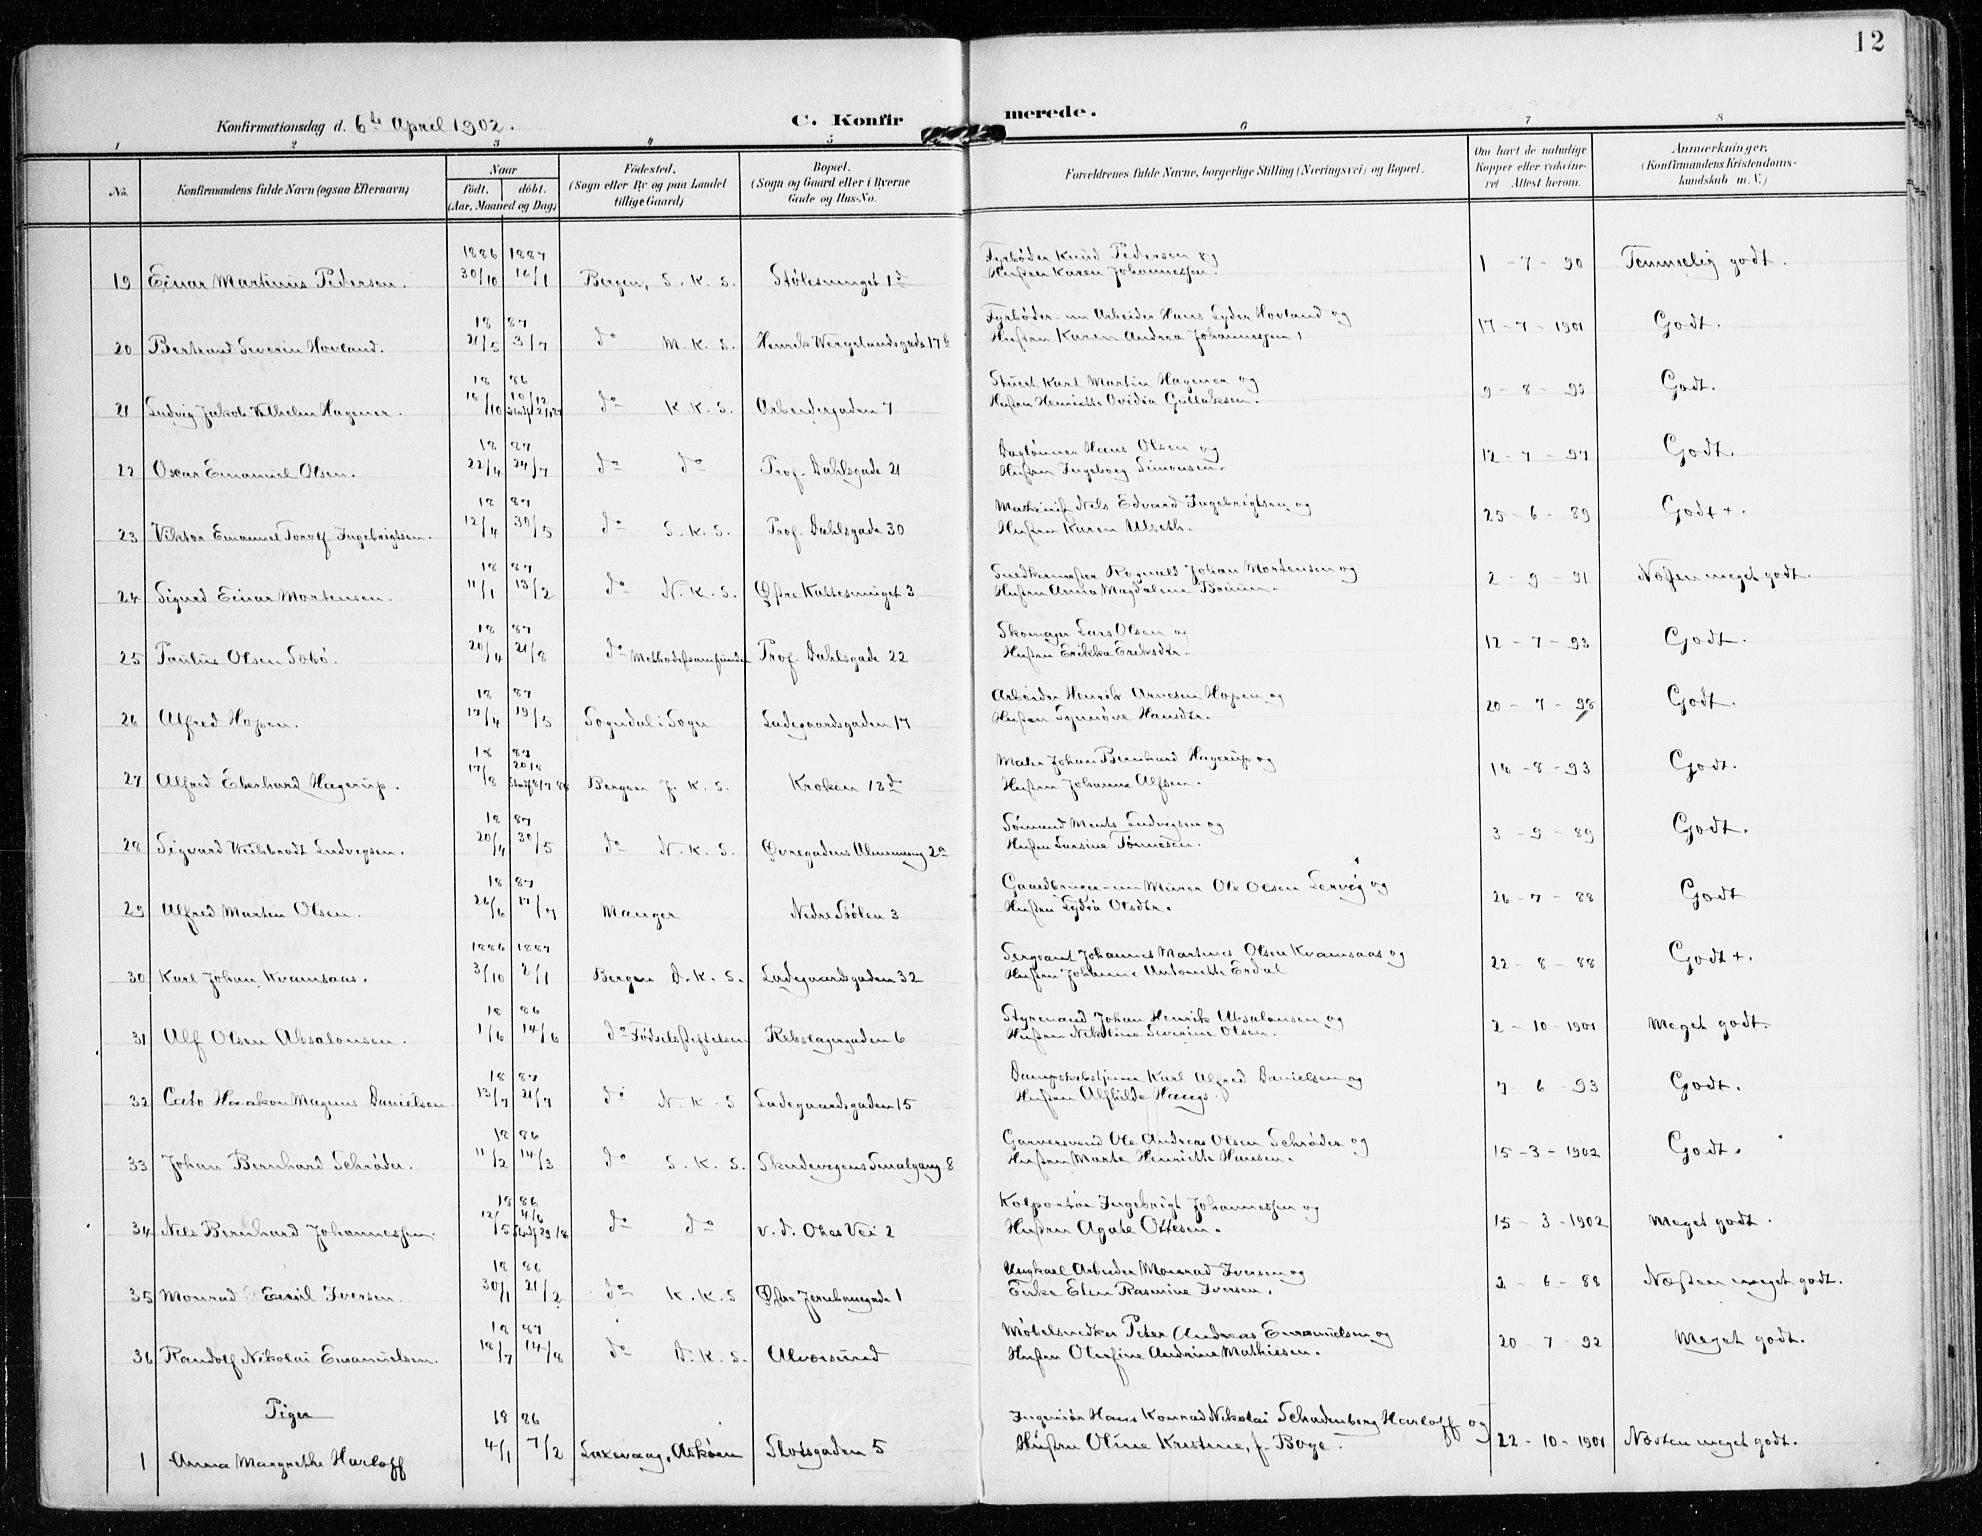 12
Konfirmationsdag d. 6te April 1902.
C. Konfirmerede.
1 2 3 4 5 6 7 8
No. Konfirmandens fulde Navn (ogsaa Efternavn) Naar født. døbt. (Aar, Maaned og Dag) Fødested. (Sogn eller By og paa Landet tillige Gaard) Bopæl. (Sogn og Gaard eller i Byerne Gade og Hus-No. Forældrenes fulde Navne, borgerlige Stilling (Næringsvei) og Bopæl. Om havt de naturlige Kopper eller vakcineret Attest herom. Anmærkninger. (Konfirmandens Kristendomskundskab m. V.)
1886 1887 Fyrbøder Knud Pedersen og
19 Einar Martinus Pedersen. 30/10 16/1 Bergen, S. K. S. Stølesmuget 1d Hustru Karen Johannessen. 1-7-90 Temmelig godt.
18 87 Fyrbøder Arbeider Hans Lyder Hovland og
20 Bertrand Severin Hovland. 21/5 3/7 do M. K. S. Henrik Wergelandsgade 17b Hustru Karen Andrea Johannessen 17-7-1901 Godt.
18 86 Stuert Karl Martin Hagener og
21 Ludvig Jakob Wilhelm Hagener. 16/10 10/12 do K. K. S. Arbeidergaden 7 Hustru Henriette Ovidia Gullaksen. 9-8-93 Godt.
18 87 Daglønner Hans Olsen og
22 Oscar Emanuel Olsen. 22/4 24/7 do do Prof. Dahlsgade 21 Hustru Ingeborg Simonsen. 12-7-97 Godt.
18 87 Nels Edvard Ingebrigtsen og
23 Viktor Emanuel Torolf Ingebrigtsen. 12/4 30/5 do S. K. S. Prof. Dahlsgade 30 Hustru Karen Ulseth. 25-6-89 Godt +.
18 87 Snedkermester Rognald Johan Mortensen og
24 Sigurd Einar Mortensen. 11/1 13/2 do N. K. S. Øftre Kattesmuget 3 Hustru Anna Magdalene Bruun. 2-9-91 Næsten meget godt.
18 87 Skomager Lars Olsen og
25 Paulus Olsen Sobø. 20/4 21/8 do Methodistsamfundet Prof. Dahlsgade 22 Hustru Erikka Eriksdtr. 12-7-93 Godt.
18 87 Arbeider Henrik Arnesen Hopen og
26 Alfred Hopen. 17/4 19/5 Sogndal i Sogn Ladegaardsgaden 17 Hustru Synnöve Hansdtr. 20-7-98 Godt.
18 87 Maler Johan Bernhard Hagerup og
27 Alfred Eberhard Hagerup. 17/8 20/8 Bergen J. K. S. Kroken 13d Hustru Johanne Alfsen. 14-8-93 Godt.
18 87 Sømand Ments Ludvigsen og
28 Sigvard Ludvigsen. 20/4 30/5 do N. K. S. Øvregadens Almenning 2a Hustru Larsine Tønnesen. 3-9-89 Godt.
18 87 Gaardbruger Murer Ole Olsen Lervig og
29 Alfred Martin Olsen. 26/6 17/7 Manger Nedre Stølen 3 Hustru Lydia Olsdtr. 26-7-88 Godt
1886 1887 Sergeant Johannes Martines Olsen Kvamsaas og
30 Karl Johan Kvamsaas. 3/10 2/1 Bergen D. K. S. Ladegaardsgaden 32 Hustru Johanne Antonette Erdal 22-8-88 Godt +.
18 86 Styrmand Johan Henrik Absalonsen og
31 Alf Olsen Absalonsen. 1/6 14/6 do Fødselsstiftelsen Rebslagergaden 6 Hustru Nikoline Severine Olsen. 2-10-1901 Meget godt.
18 87 Karl Alfred Danielsen og
32 Cato Haakon Magnus Danielsen. 13/7 21/7 do N. K. S Ladegaardsgaden 15 Hustru Alfhilde Haugs. 7-6-93 Godt.
18 86 Garversvend Ole Andreas Olsen Schrøder og
33 Johan Bernhard Schrøder. 11/2 14/3 do S. K. S. Skudevigens Smalgang 8 Hustru Marte Henriette Hansen. 15-3-1902 Godt.
18 86 Kolportør Ingebrigt Johannessen og
34 Nels Bernhard Johannessen. 12/5 4/6 do do v. d. Ohes Vei 2 Hustru Agate Ottesen. 15-3-1902 Meget godt.
18 86 Ungkarl Arbeider Monrad Iversen og
35 Monrad Emil Iversen. 30/1 21/2 do K. K. S Øftre Jernbanegade 1 Enke Elen Rasmine Iversen. 2-6-88 Næsten meget godt.
18 87 Møbelsnedker Peter Andreas Emanuelsen og
36 Randolf Nikolai Emanuelsen. 18/7 14/8 do D. K. S. Alværsund Hustru Olefine Andrine Mathiesen. 20-7-92 Meget godt.
Piger
18 86 Ingeniør Hans Konrad Nikolai Schudenberg Harloff og
1 Anna Margrethe Harloff 4/1 7/2 Laksevaag, Askøen Slotsgaden 5 Hustru Oline Kristine, f. Boge. 22-10-1901 Næsten meget godt.